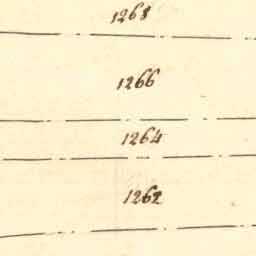 1268
1266
1264
1262